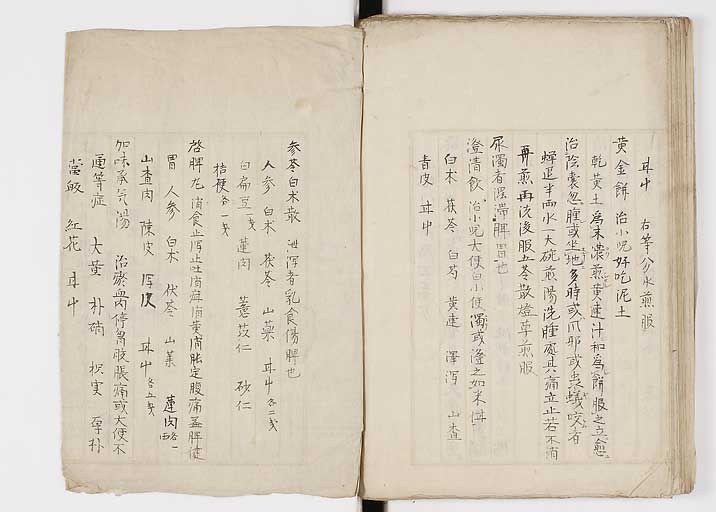 甘中 右等分水煎服
黄金餅 治小児好吃泥土
乾黄土為末濃煎黄連汁和為餅服之立愈
治陰囊忽腫或坐地多時或爪邪或虫蟻咬者
蟬退半両水一大碗煎湯洗腫處其痛立止若不消
再煎再洗後服五苓散燈草煎服
尿濁者湿滞脾胃也
澄清飲 治小児大便白小便濁或澄之如米泔
白朮 茯苓 白芍 黄連 澤瀉 山査
青皮 甘中
参苓白朮散 泄瀉者乳食傷脾也
人参 白朮 茯苓 山薬 甘中各二戔
白扁豆一戔 蓮肉 薏苡仁 砂仁
桔梗各一戔
啓脾丸 消食止瀉止吐消疳消黄消脹定腹痛益脾健
胃 人参 白朮 伏苓 山薬 蓮肉
山査肉 陳皮 澤瀉 甘中各五戔
加味承气湯 治瘀血内停胷腹脹痛或大便不
通等症 大黄 朴硝 枳実 厚朴
當皈 紅花 甘中